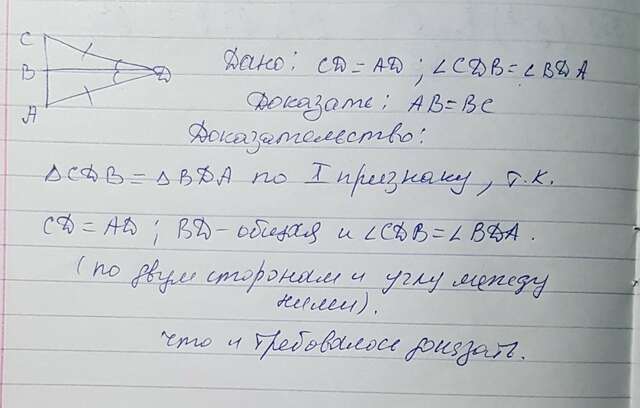 C
B
D
A
Дано: CD = AD; ∠CDB = ∠BDA
Доказать: AB = BC
Доказательство:
△CDB = △BDA по I признаку, т.к.
CD = AD; BD - общая и ∠CDB = ∠BDA.
(по двум сторонам и углу между
ними).
Что и требовалось доказать.